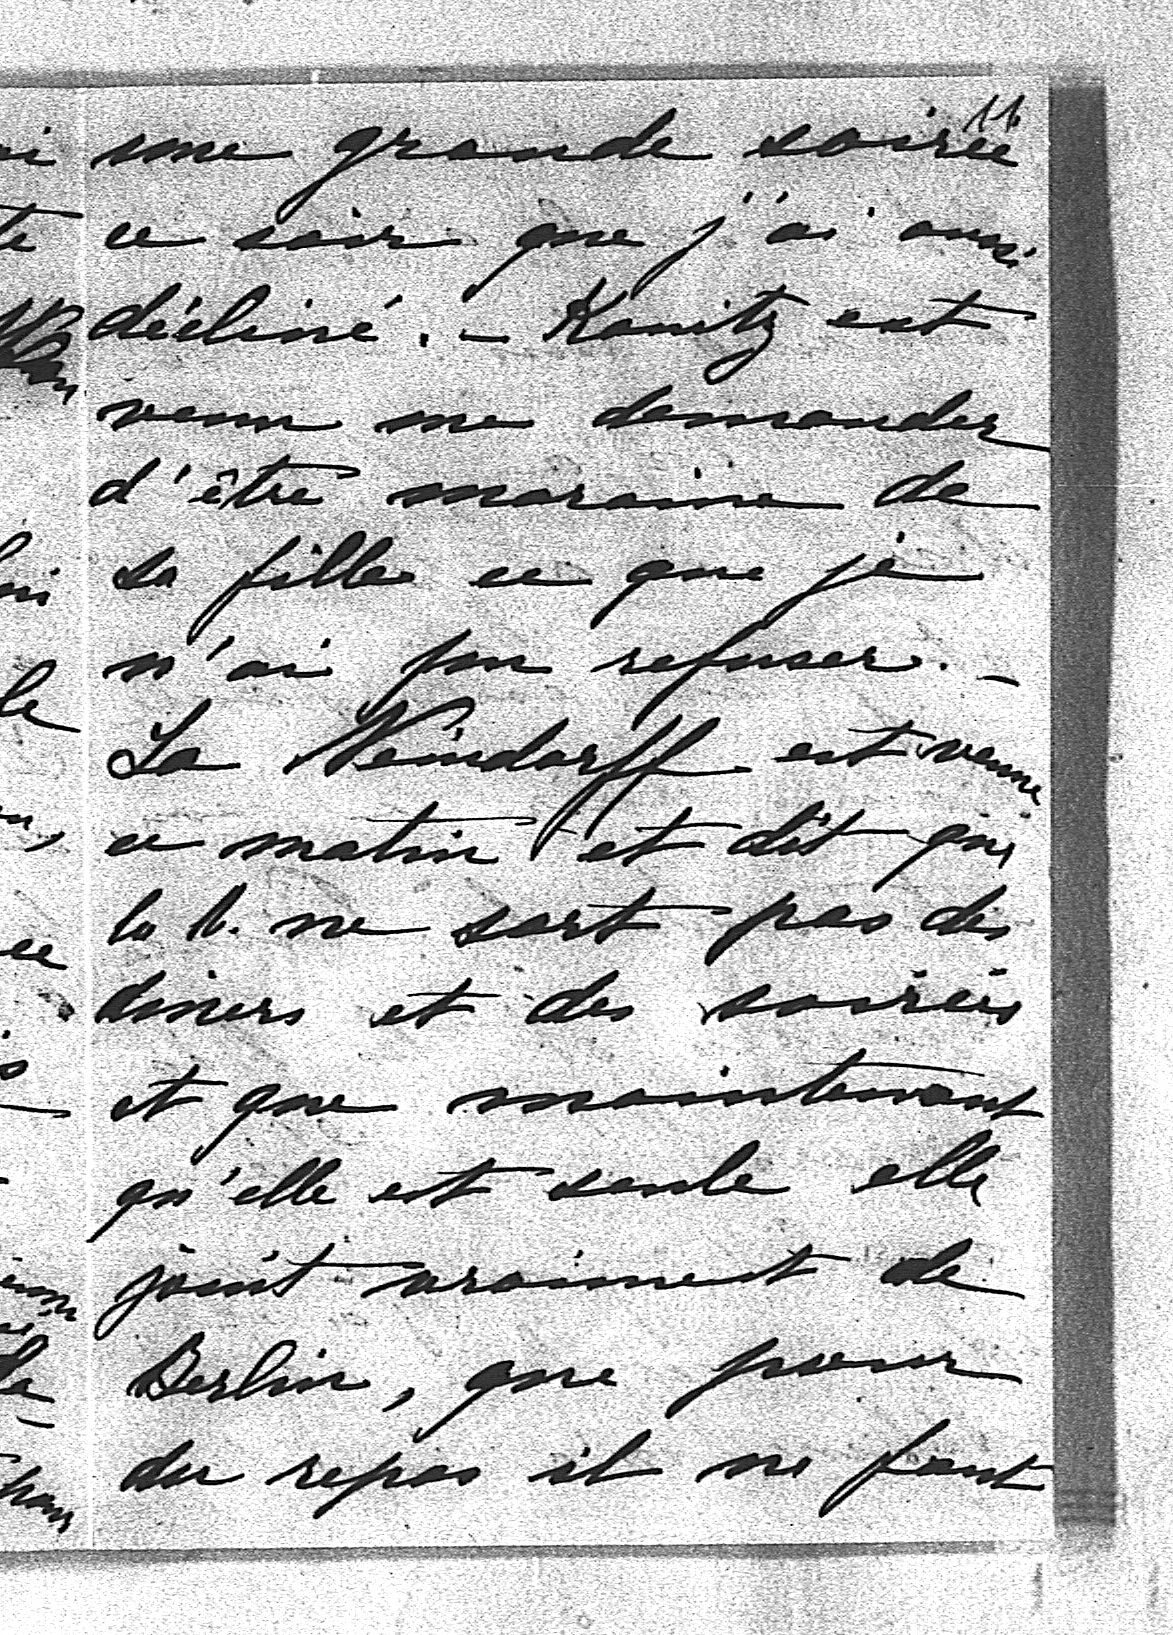 11
une grande soirée
ce soir que j'ai aussi
décliné. – Kanitz est
venu me demander
d'être marraine de
sa fille ce que je
n'ai pu refuser. –
La est venue
ce matin et dit que
la b. ne sort pas des
diners et des soirées
et que maintenant
qu'elle est seule elle
jouit vraiment de
Berlin, que pour
du repos il ne faut